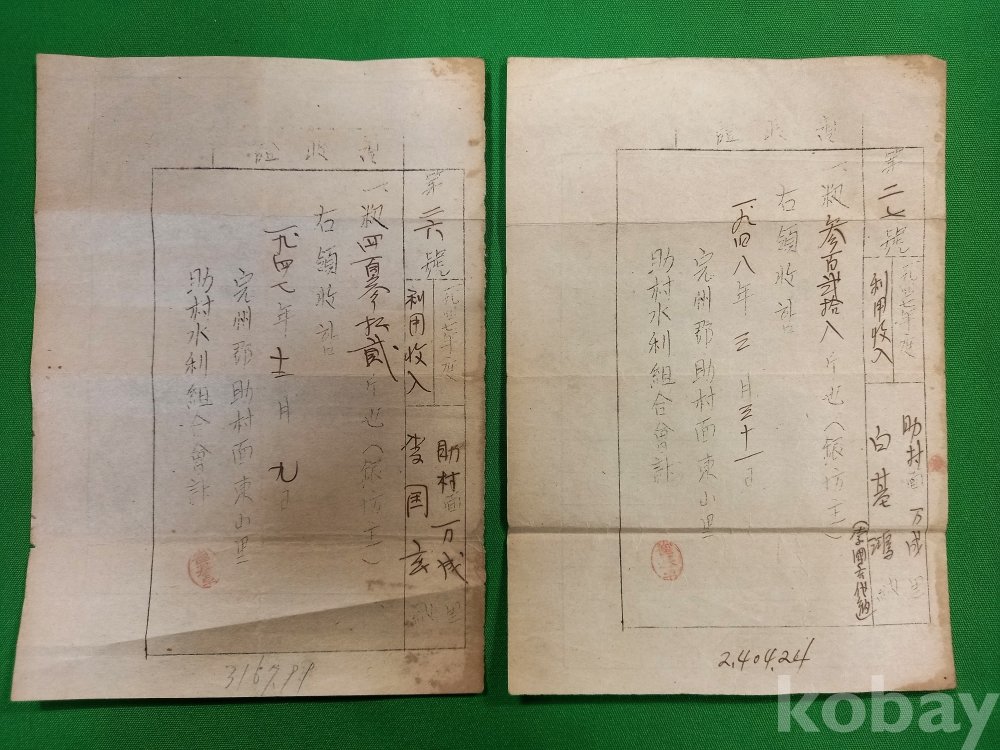 領收証
第二六號
一九四七年度
利用收入
助村面 万成里
李国玄 納
一、籾四百參拾貳斤也(
右領收함
一九四七年 十二月 九日
完州郡助村面東山里
助村水利組合會計
3167.99
領收証
第二七號
一九四七年度
利用收入
助村面 万成里
白基鴻 納
一、籾參百貳拾八斤也(
右領收함
一九四八年 三月 三十一日
完州郡助村面東山里
助村水利組合會計
2,404.24
kobay